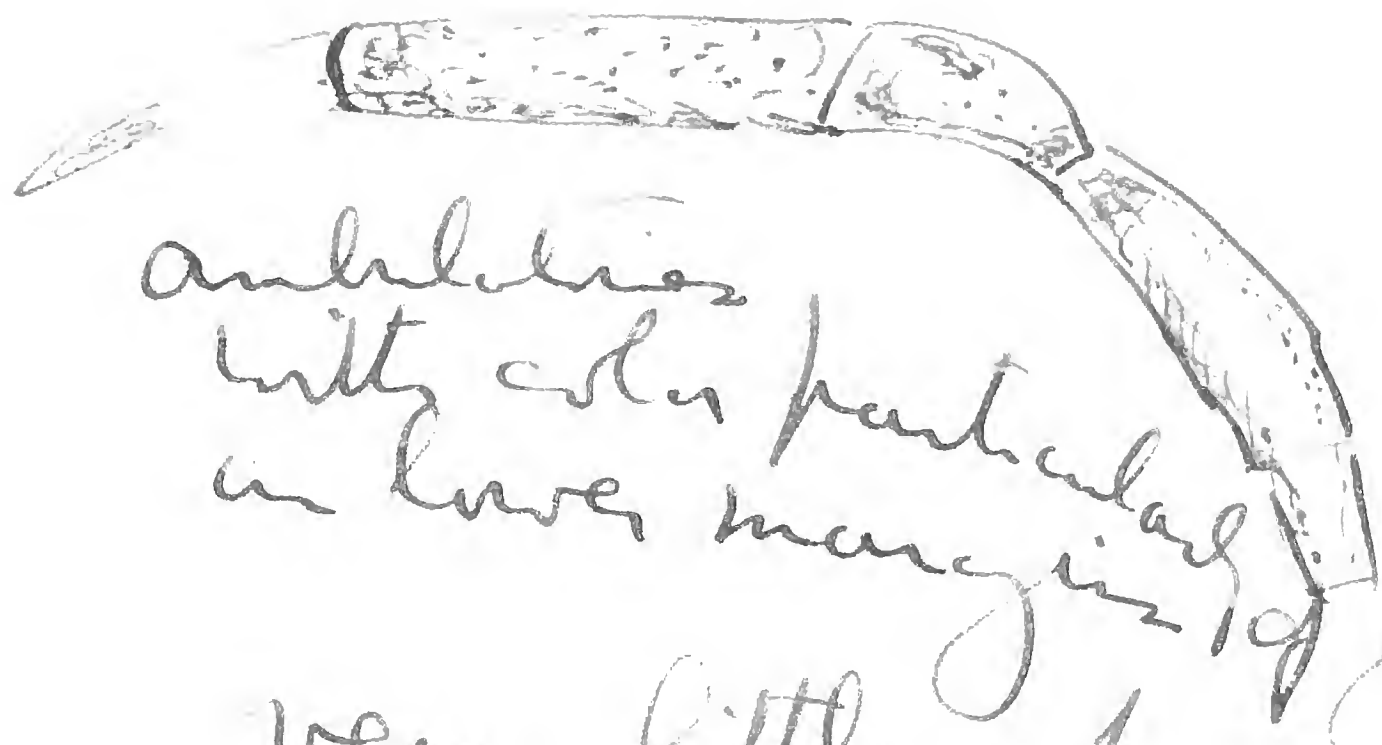 ambulatories
with color particularly
in lower margins of
very little